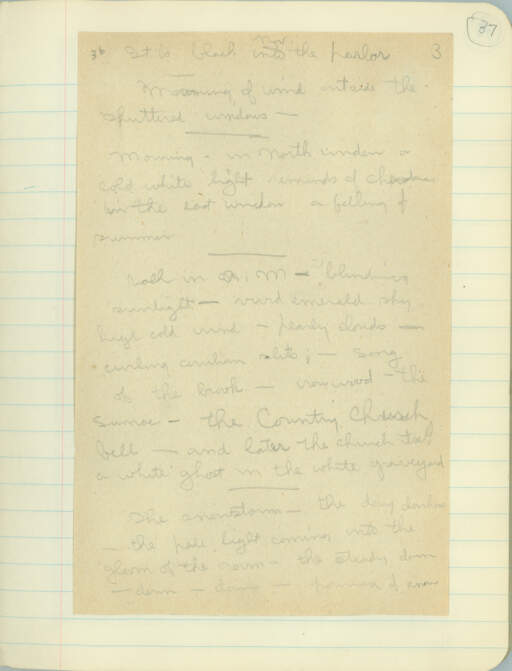 37
36 It is black into the parlor 3
Moaning of wind outside the
shuttered windows —
Morning - in North window a
cold white light reminds of
in the east window a felling of
summer
Walk in A.M — blinding
sunlight — vivid emerald sky
high cold wind — pearly clouds —
curling cerulean slits; — song
of the brook — ironwood — the
sumac — the Country Church
bell — and later the church itself
a white ghost in the white graveyard
The snowstorm — the day darkens
— the pale light coming into the
gloom of the room — the steady down
— down — down — of snow